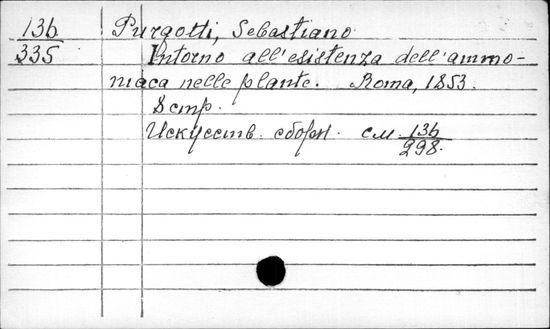 136 Purgotti, Sebastiano
335 Intorno all'esistenza dell'ammo-
niaca nelle plante. Roma, 1853.
8 стр.
Искусств. сборн. см. 136
298.